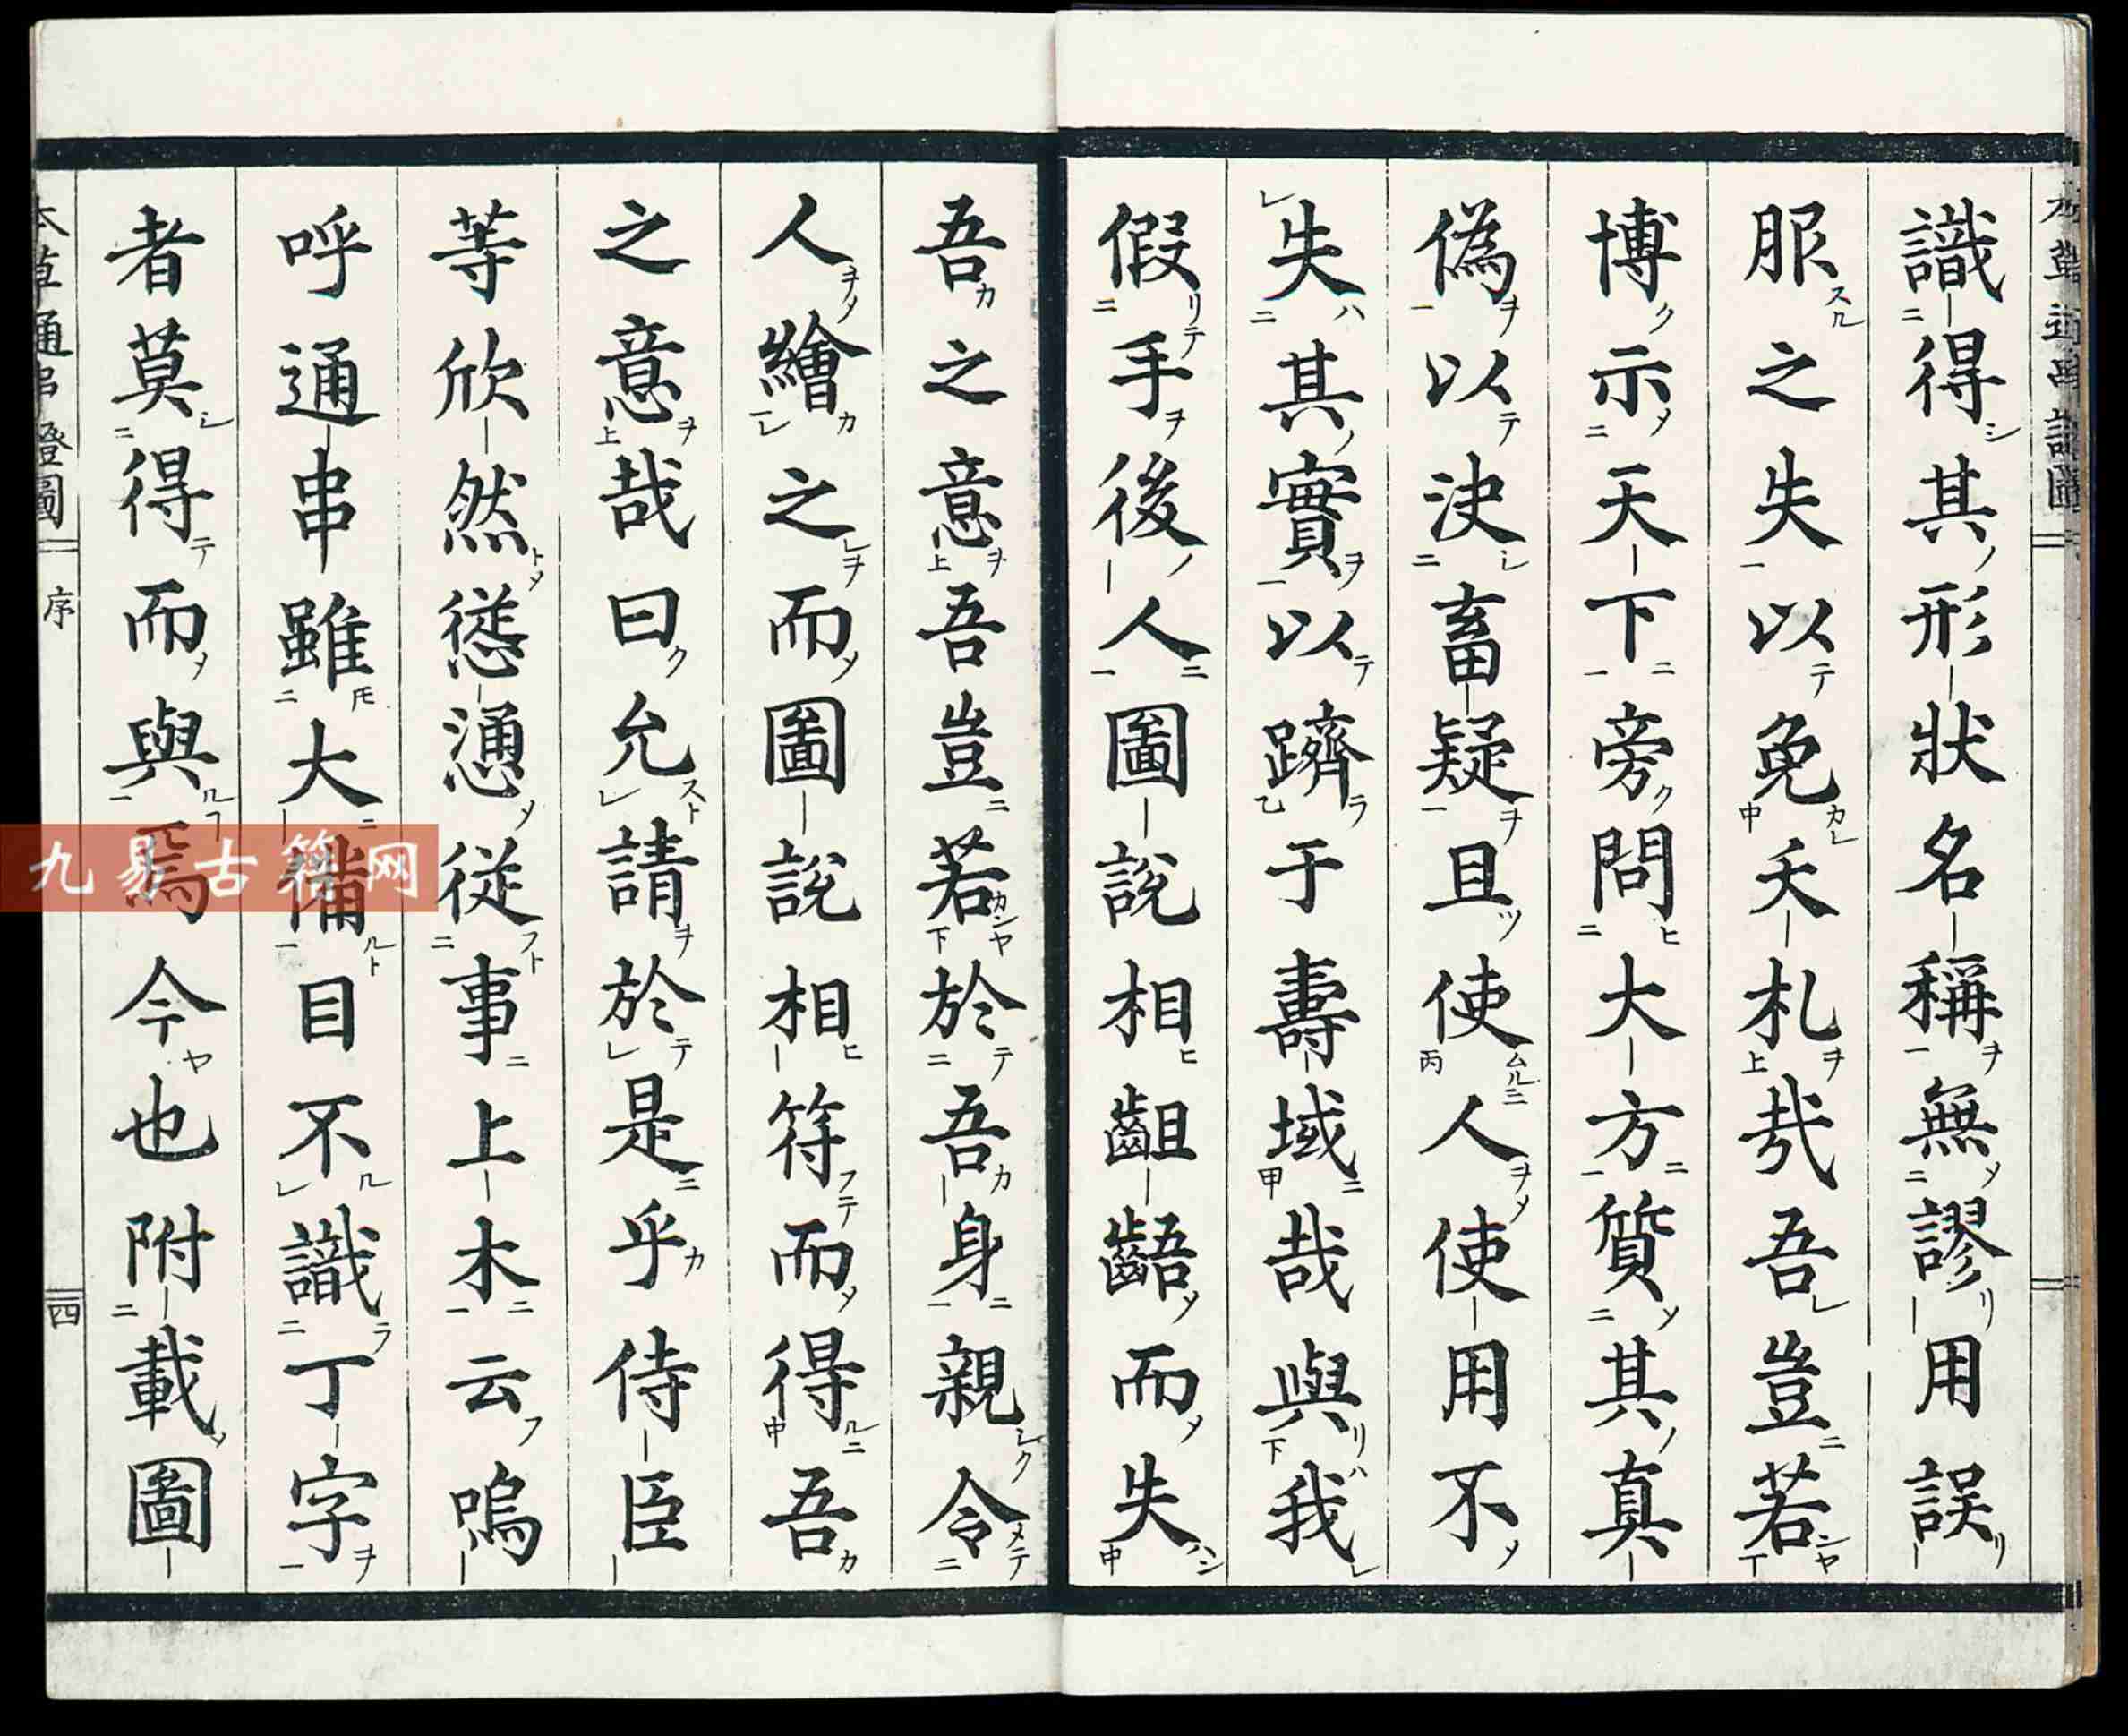 識得其形狀名稱無謬用誤
服之失以免夭札哉吾豈若
博示天下旁問大方質其真
偽以決畜疑且使人使用不
失其實以躋于壽域哉與我
假手後人圖說相齟齬而失
吾之意吾豈若於吾身親令
人繪之而圖說相符而得吾
之意哉曰允請於是乎侍臣
等欣然慫慂從事上木云嗚
呼通串雖大備目不識丁字
者莫得而與焉今也附載圖
本草通串證圖
序
四
九易古籍网